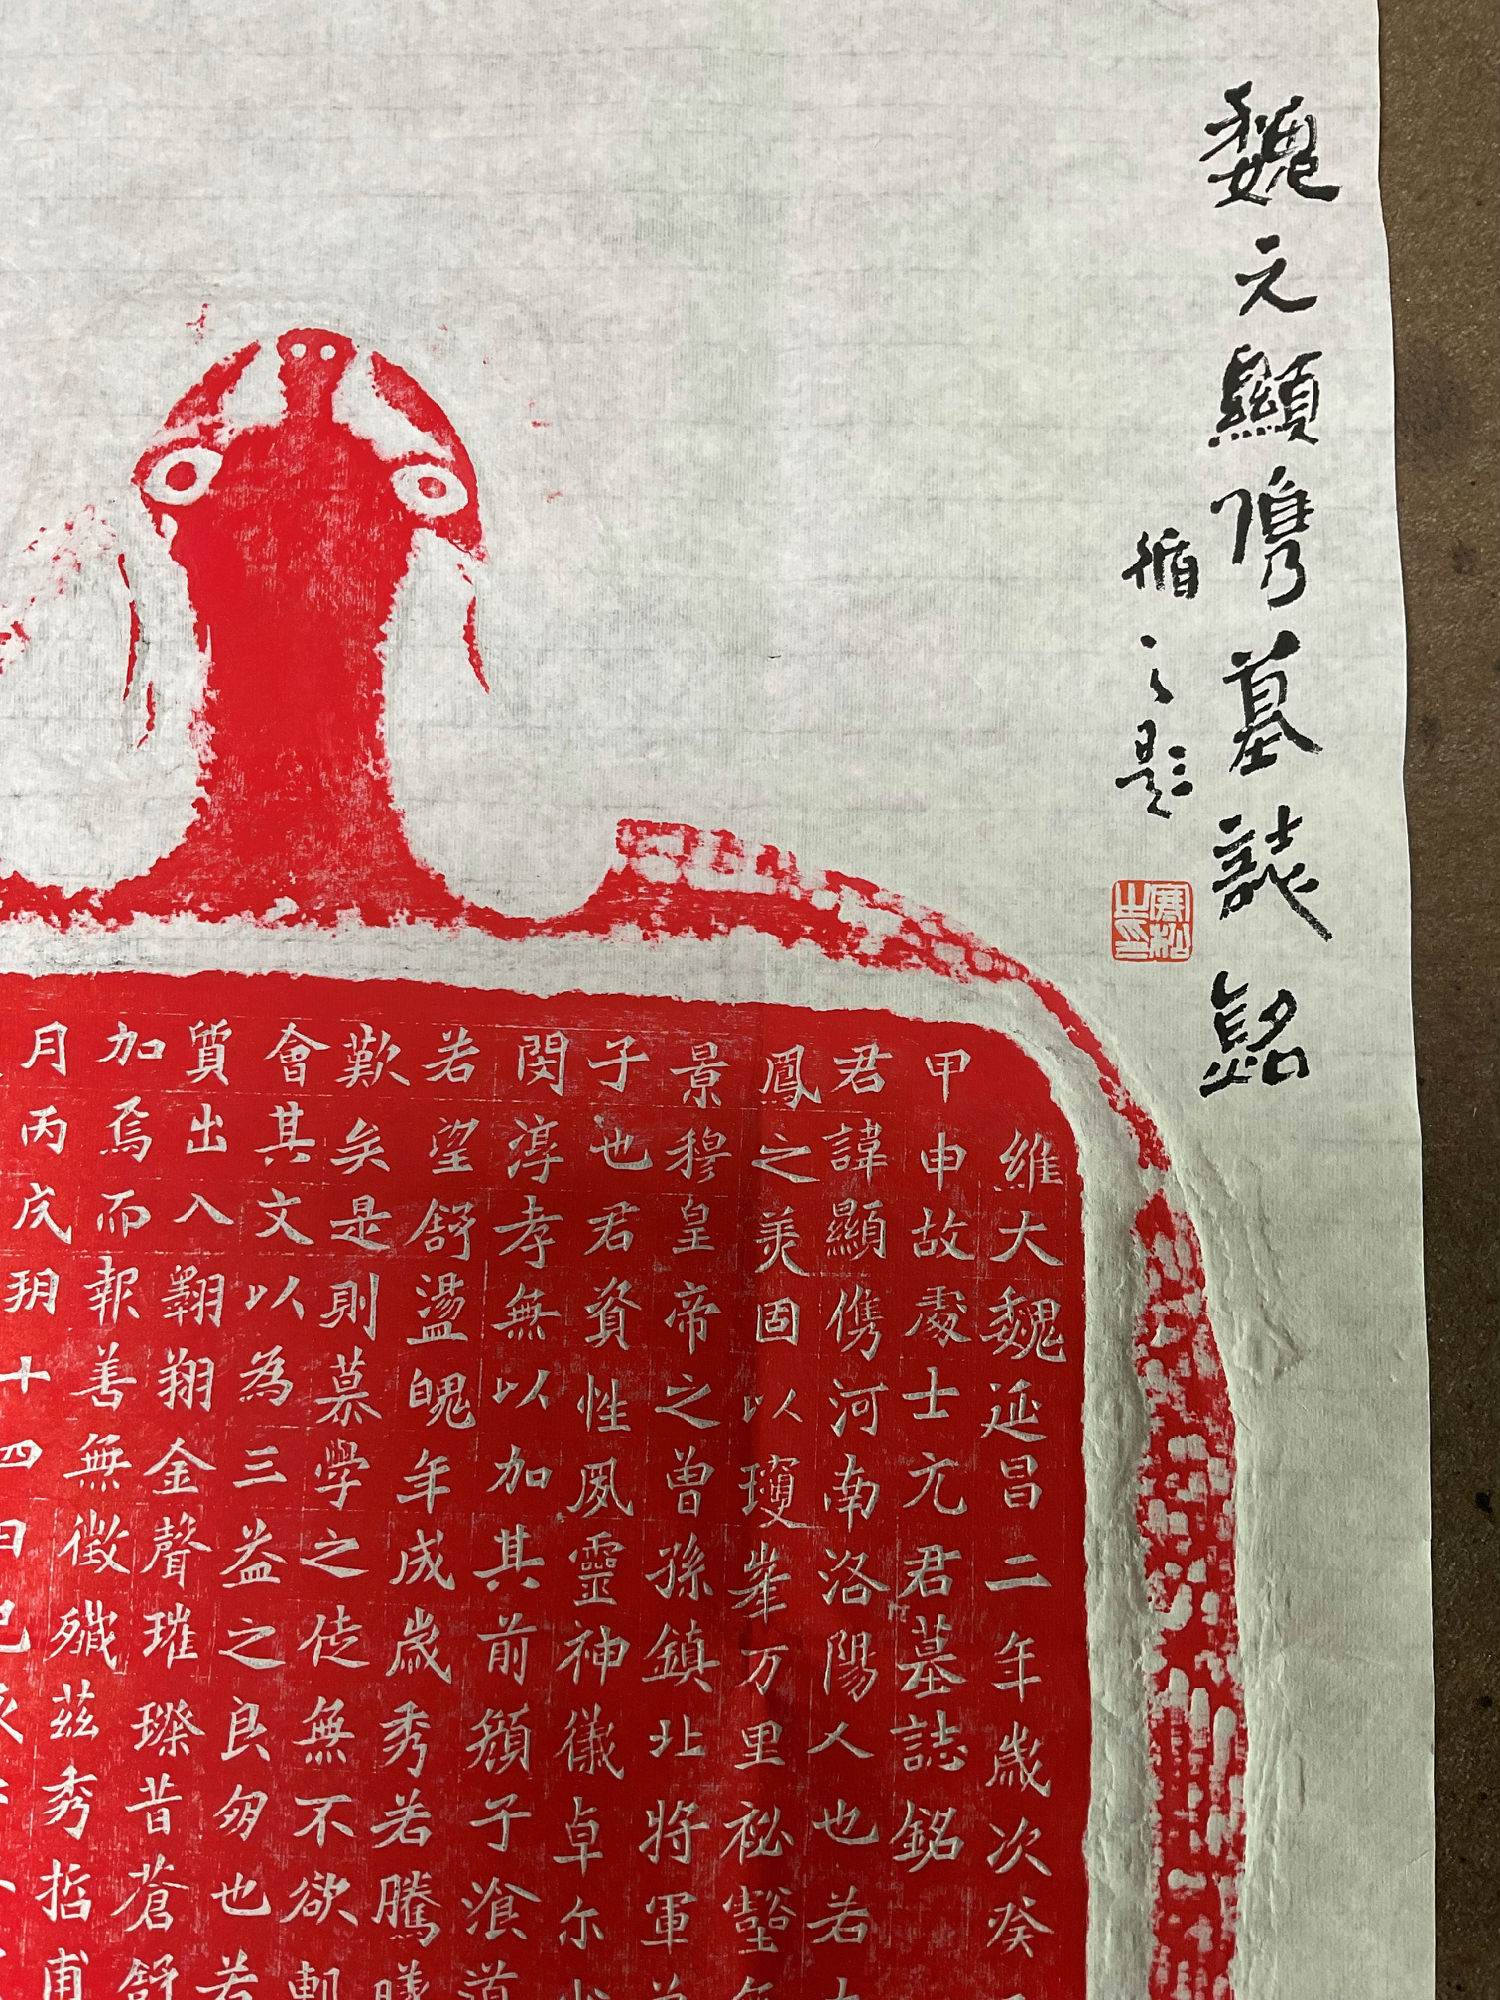 魏元顯儁墓誌銘
循之題
松之印
維大魏延昌二年歲次癸
甲申故處士元君墓誌銘
君諱顯儁河南洛陽人也若
鳳之美固以瓊峯万里祕壑無
景穆皇帝之曾孫鎮北將軍
子也君資性夙靈神儀卓尔
閔淳孝無以加其前顏子湌道
若望舒盪魄年成歲秀若騰曦
歎矣是則慕學之徒無不欲軔
會其文以為三益之良朋也若
質出入翱翔金聲璀璨昔蒼舒
加焉而報善無徵殲茲秀哲甫
月丙戌朔十四日己